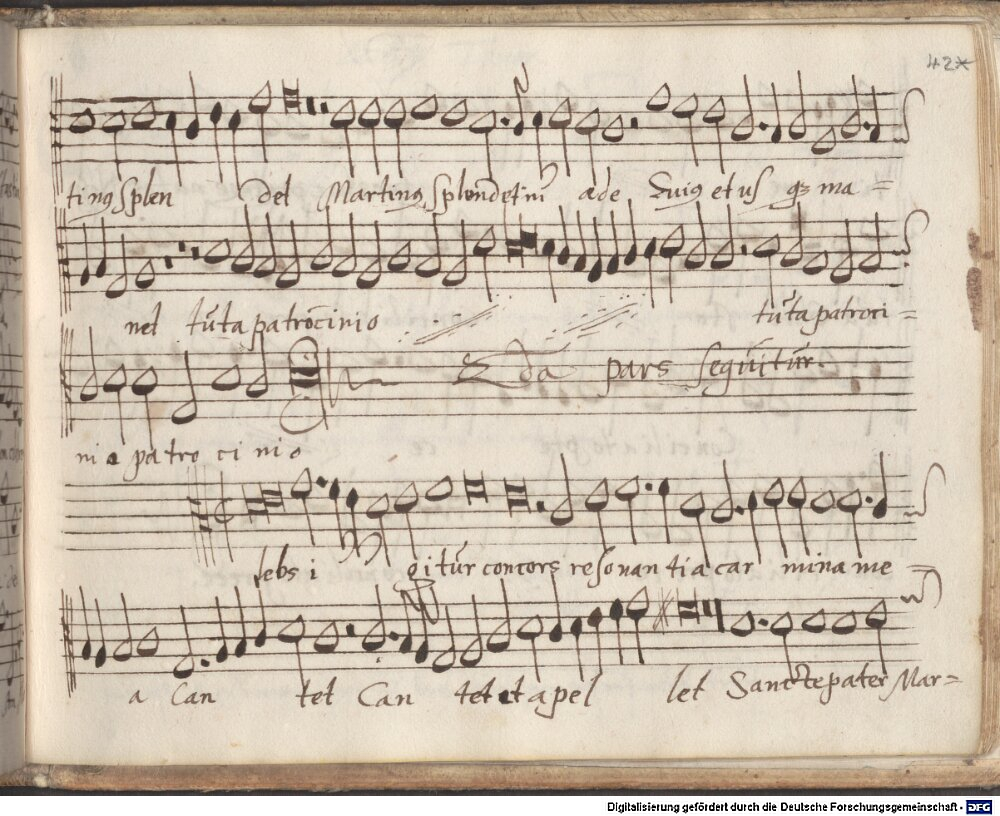 42*
tinus splen det Martinus splendet in ae de Huius et us q3 ma=
net tuta patrocinio tuta patroci=
2da pars sequitur.
nio patro ci nio
lebs i gitur concors resonan tia car mina me=
a Can tet Can tet et apel let Sancte pater Mar=
Digitalisierung gefördert durch die Deutsche Forschungsgemeinschaft - DFG